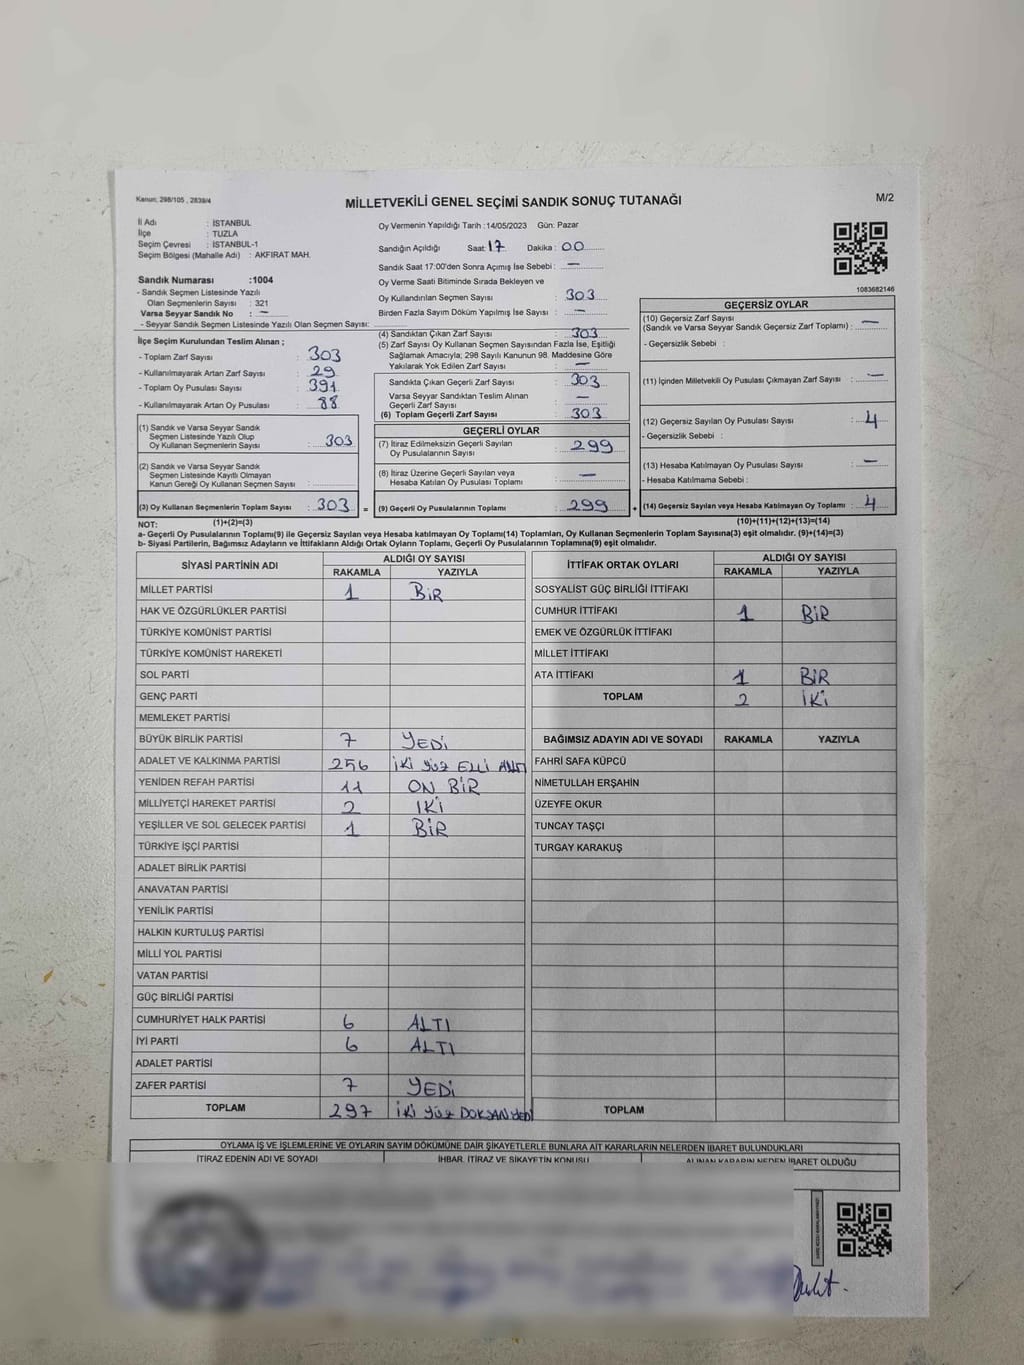 Kanun: 298/105 , 2839/4
MİLLETVEKİLİ GENEL SEÇİMİ SANDIK SONUÇ TUTANAĞI
M/2
İl Adı : İSTANBUL
İlçe : TUZLA
Seçim Çevresi : İSTANBUL-1
Seçim Bölgesi (Mahalle Adı) : AKFIRAT MAH.
Sandık Numarası :1004
- Sandık Seçmen Listesinde Yazılı
Olan Seçmenlerin Sayısı : 321
Varsa Seyyar Sandık No : —
- Seyyar Sandık Seçmen Listesinde Yazılı Olan Seçmen Sayısı:
İlçe Seçim Kurulundan Teslim Alınan ;
- Toplam Zarf Sayısı : 303
- Kullanılmayarak Artan Zarf Sayısı : 29
- Toplam Oy Pusulası Sayısı : 391
- Kullanılmayarak Artan Oy Pusulası : 88
(1) Sandık ve Varsa Seyyar Sandık
Seçmen Listesinde Yazılı Olup
Oy Kullanan Seçmenlerin Sayısı : 303
(2) Sandık ve Varsa Seyyar Sandık
Seçmen Listesinde Kayıtlı Olmayan
Kanun Gereği Oy Kullanan Seçmen Sayısı :
(3) Oy Kullanan Seçmenlerin Toplam Sayısı : 303 =
Oy Vermenin Yapıldığı Tarih : 14/05/2023 Gün: Pazar
Sandığın Açıldığı Saat: 17 Dakika : 00
Sandık Saat 17:00'den Sonra Açımış İse Sebebi : —
Oy Verme Saati Bitiminde Sırada Bekleyen ve
Oy Kullandırılan Seçmen Sayısı : 303
Birden Fazla Sayım Döküm Yapılmış İse Sayısı : —
(4) Sandıktan Çıkan Zarf Sayısı : 303
(5) Zarf Sayısı Oy Kullanan Seçmen Sayısından Fazla İse, Eşitliği
Sağlamak Amacıyla; 298 Sayılı Kanunun 98. Maddesine Göre
Yakılarak Yok Edilen Zarf Sayısı : —
Sandıkta Çıkan Geçerli Zarf Sayısı : 303
Varsa Seyyar Sandıktan Teslim Alınan
Geçerli Zarf Sayısı : —
(6) Toplam Geçerli Zarf Sayısı : 303
GEÇERLİ OYLAR
(7) İtiraz Edilmeksizin Geçerli Sayılan
Oy Pusulalarının Sayısı : 299
(8) İtiraz Üzerine Geçerli Sayılan veya
Hesaba Katılan Oy Pusulası Toplamı : —
(9) Geçerli Oy Pusulalarının Toplamı : 299 +
1083682146
GEÇERSİZ OYLAR
(10) Geçersiz Zarf Sayısı
(Sandık ve Varsa Seyyar Sandık Geçersiz Zarf Toplamı) : —
- Geçersizlik Sebebi :
(11) İçinden Milletvekili Oy Pusulası Çıkmayan Zarf Sayısı : —
(12) Geçersiz Sayılan Oy Pusulası Sayısı : 4
- Geçersizlik Sebebi :
(13) Hesaba Katılmayan Oy Pusulası Sayısı : —
- Hesaba Katılmama Sebebi :
(14) Geçersiz Sayılan veya Hesaba Katılmayan Oy Toplamı : 4
NOT: (1)+(2)=(3) (10)+(11)+(12)+(13)=(14)
a- Geçerli Oy Pusulalarının Toplamı(9) ile Geçersiz Sayılan veya Hesaba katılmayan Oy Toplamı(14) Toplamları, Oy Kullanan Seçmenlerin Toplam Sayısına(3) eşit olmalıdır. (9)+(14)=(3)
b- Siyasi Partilerin, Bağımsız Adayların ve İttifakların Aldığı Ortak Oyların Toplamı, Geçerli Oy Pusulalarının Toplamına(9) eşit olmalıdır.
SİYASİ PARTİNİN ADI ALDIĞI OY SAYISI
RAKAMLA YAZIYLA
MİLLET PARTİSİ 1 BİR
HAK VE ÖZGÜRLÜKLER PARTİSİ
TÜRKİYE KOMÜNİST PARTİSİ
TÜRKİYE KOMÜNİST HAREKETİ
SOL PARTİ
GENÇ PARTİ
MEMLEKET PARTİSİ
BÜYÜK BİRLİK PARTİSİ 7 YEDİ
ADALET VE KALKINMA PARTİSİ 256 İKİ YÜZ ELLİ ALTI
YENİDEN REFAH PARTİSİ 11 ON BİR
MİLLİYETÇİ HAREKET PARTİSİ 2 İKİ
YEŞİLLER VE SOL GELECEK PARTİSİ 1 BİR
TÜRKİYE İŞÇİ PARTİSİ
ADALET BİRLİK PARTİSİ
ANAVATAN PARTİSİ
YENİLİK PARTİSİ
HALKIN KURTULUŞ PARTİSİ
MİLLİ YOL PARTİSİ
VATAN PARTİSİ
GÜÇ BİRLİĞİ PARTİSİ
CUMHURİYET HALK PARTİSİ 6 ALTI
İYİ PARTİ 6 ALTI
ADALET PARTİSİ
ZAFER PARTİSİ 7 YEDİ
TOPLAM 297 İKİ YÜZ DOKSAN YEDİ
İTTİFAK ORTAK OYLARI ALDIĞI OY SAYISI
RAKAMLA YAZIYLA
SOSYALİST GÜÇ BİRLİĞİ İTTİFAKI
CUMHUR İTTİFAKI 1 BİR
EMEK VE ÖZGÜRLÜK İTTİFAKI
MİLLET İTTİFAKI
ATA İTTİFAKI 1 BİR
TOPLAM 2 İKİ
BAĞIMSIZ ADAYIN ADI VE SOYADI RAKAMLA YAZIYLA
FAHRİ SAFA KÜPCÜ
NİMETULLAH ERŞAHİN
ÜZEYFE OKUR
TUNCAY TAŞÇI
TURGAY KARAKUŞ
TOPLAM
OYLAMA İŞ VE İŞLEMLERİNE VE OYLARIN SAYIM DÖKÜMÜNE DAİR ŞİKAYETLERLE BUNLARA AİT KARARLARIN NELERDEN İBARET BULUNDUKLARI
İTİRAZ EDENİN ADI VE SOYADI İHBAR, İTİRAZ VE ŞİKAYETİN KONUSU ALINAN KARARIN NEDEN İBARET OLDUĞU